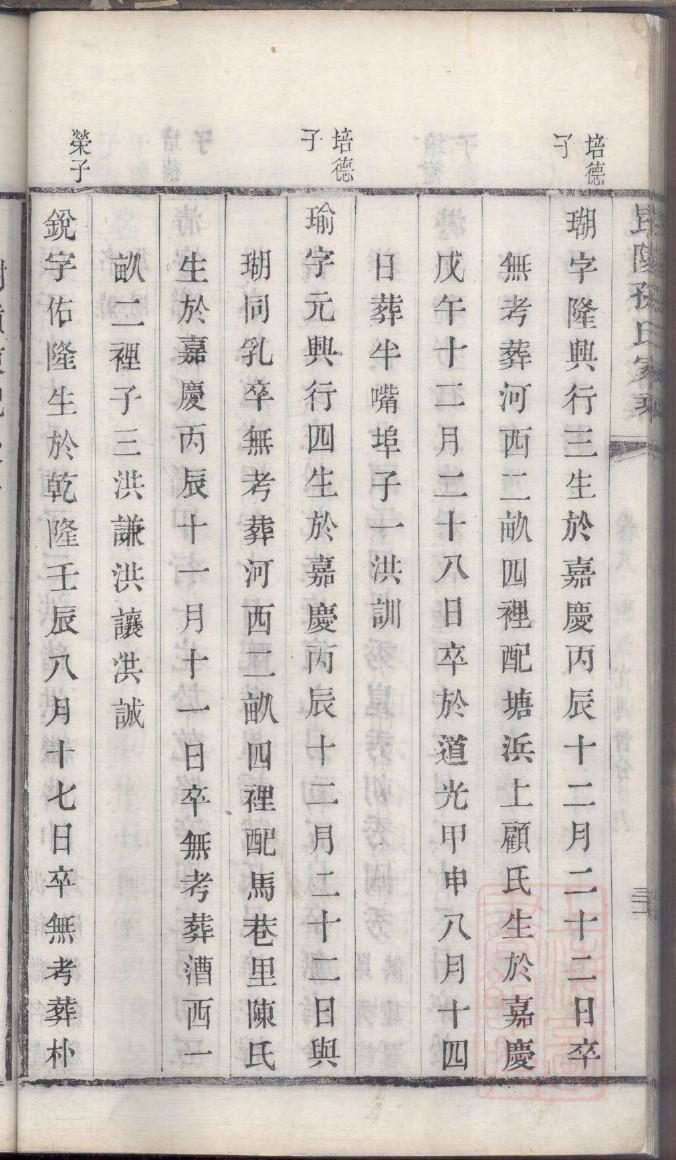 毘陵孫氏家乘
培德子
瑚字隆興行三生於嘉慶丙辰十二月二十二日卒
無考葬河西二畝四裡配塘浜上顧氏生於嘉慶
戊午十二月二十八日卒於道光甲申八月十四
日葬半嘴埠子一洪訓
培德子
瑜字元興行四生於嘉慶丙辰十二月二十二日與
瑚同乳卒無考葬河西二畝四裡配馬巷里陳氏
生於嘉慶丙辰十一月十一日卒無考葬漕西一
畝二裡子三洪謙洪讓洪誠
榮子
銳字佑隆生於乾隆壬辰八月十七日卒無考葬朴